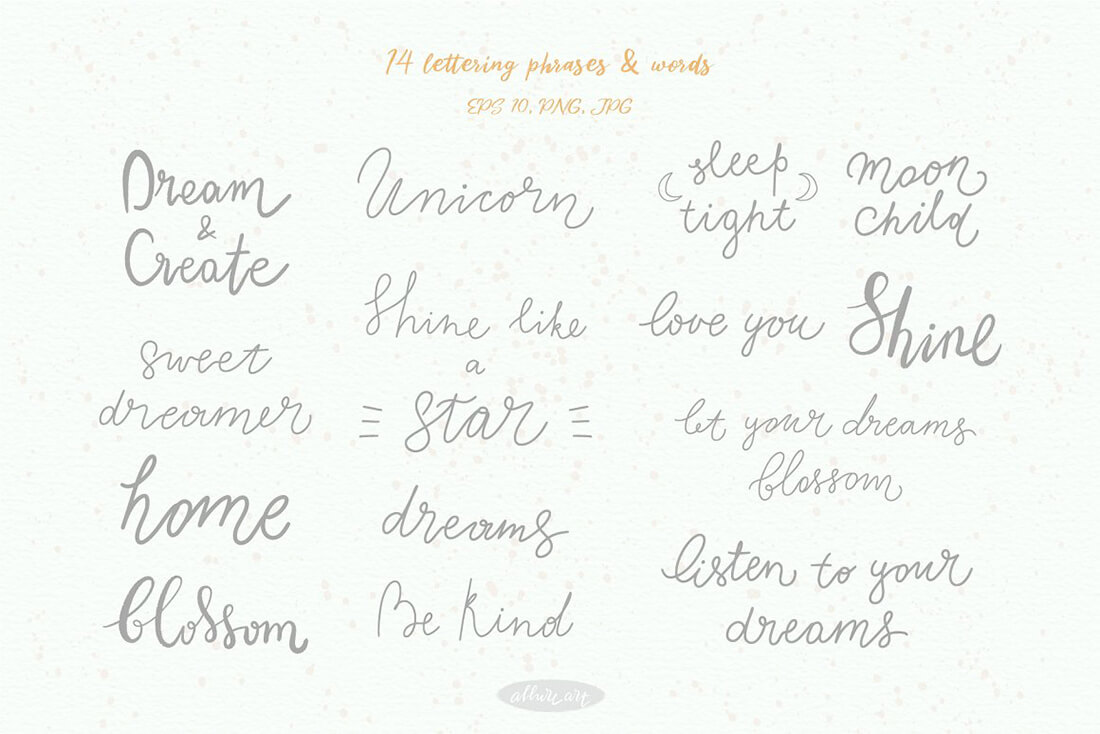 14 lettering phrases & words
EPS 10, PNG, JPG
Dream
&
Create
sweet
dreamer
home
blossom
Unicorn
Shine like
a
star
dreams
Be Kind
sleep
tight
moon
child
love you
Shine
let your dreams
blossom
listen to your
dreams
allure art